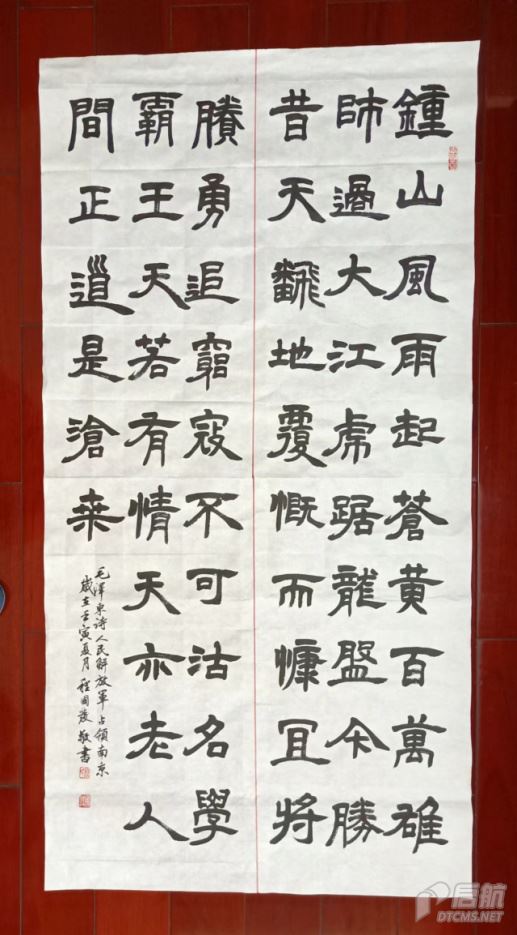 鍾山風雨起蒼黃百萬雄
師過大江虎踞龍盤今勝
昔天飜地覆慨而慷冝將
賸勇追窮寇不可沽名學
霸王天若有情天亦老人
間正道是滄桑
毛澤東詩人民解放軍占領南京
歲在壬寅夏月 程国 敬書
启航
DTCMS.COM